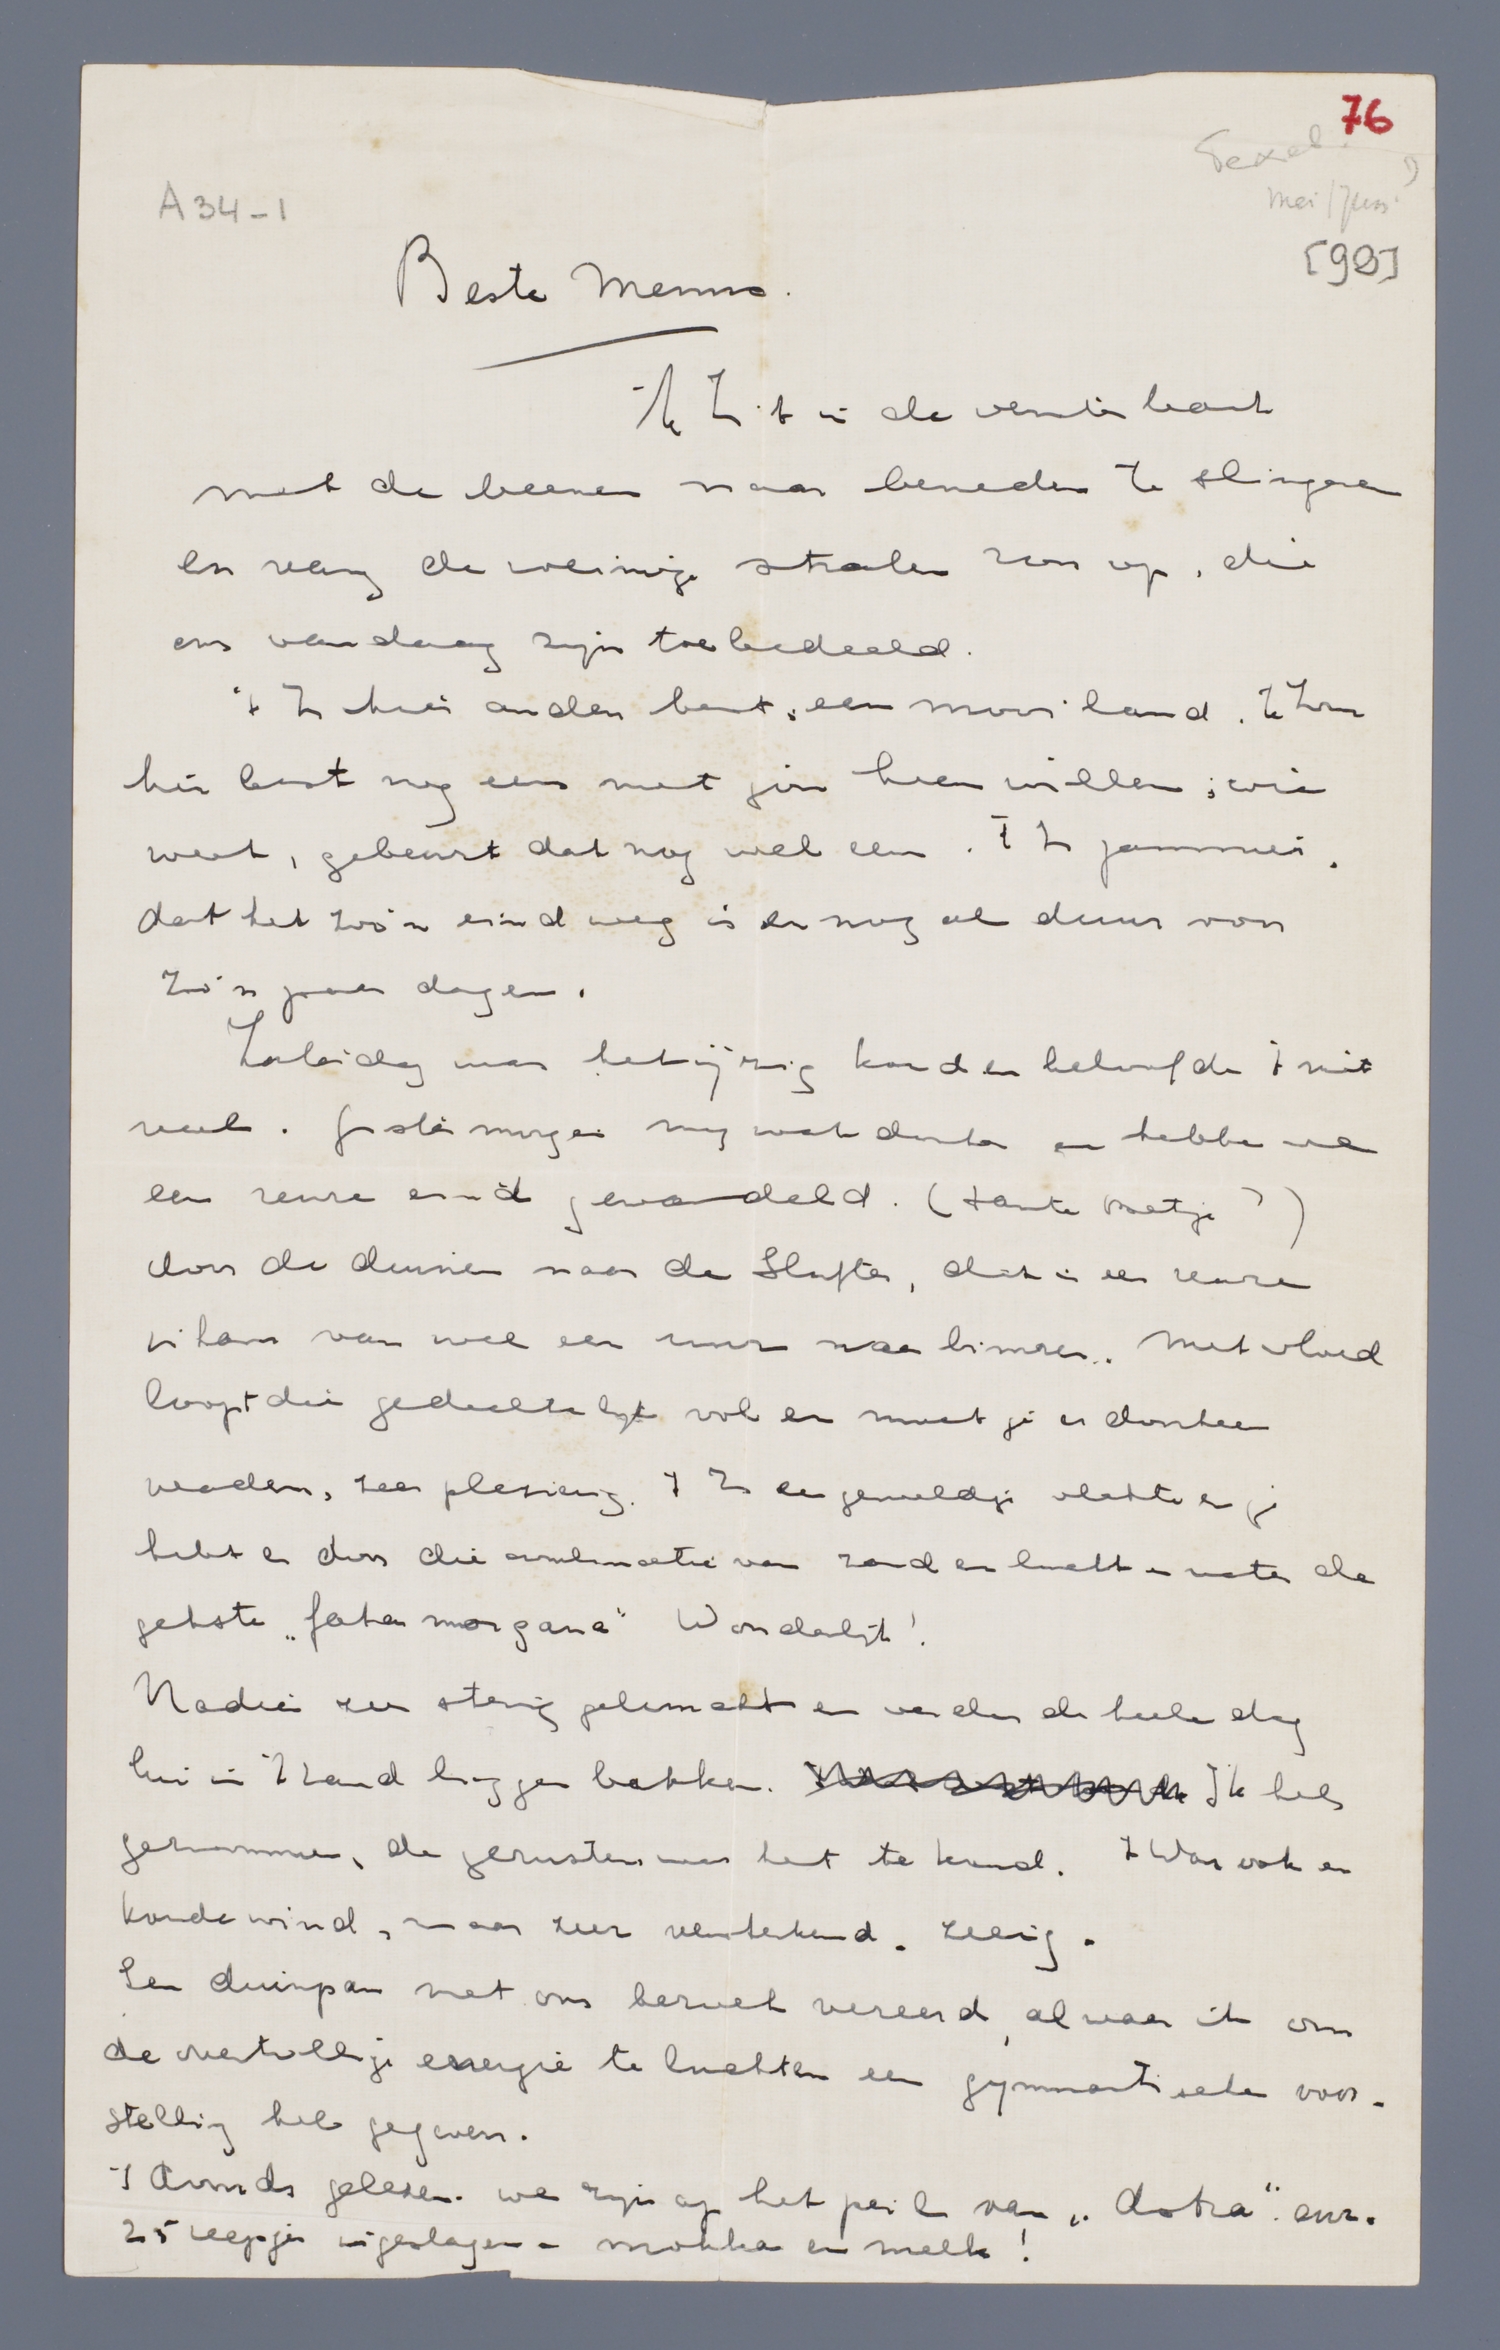 76
Texel?
mei/juni
A34-1
[90]
Beste Menno.
Ik zit in de vensterbank
met de beenen naar beneden te slingeren
en vang de weinige stralen zon op, die
ons vandaag zijn toebedeeld.
't Is hier anders best, een mooi land. Ik zou
hier best nog eens met jou heen willen; wie
weet, gebeurt dat nog wel eens. 't Is jammer,
dat het zoo'n eind weg is en nog al duur voor
zoo'n paar dagen.
Zaterdag was het ijzig koud en beloofde 't niet
veel. Gistermorgen nog wat en hebben we
een reuze eind gewandeld. (tante Betje?)
door de duinen naar de Slufter, dat is een reuze
van wel een uur naar binnen. Met vloed
loopt die gedeeltelijk vol en moet je er doorheen
waden, zeer plezierig. 't Is een geweldige vlakte en je
hebt er door die combinatie van zand en lucht en water de
gekste „fata morgana" Wonderlijk!
Nadien zeer stevig geluncht en verder de heele dag
lui in 't zand liggen bakken. Ik heb
gezwommen, de zusters was het te koud. 't Was ook een
koude wind, maar zeer versterkend. zeeig.
Een duinpan met ons bezoek vereerd, alwaar ik om
de overtollige energie te luchten een gymnastische voor-
stelling heb gegeven.
's Avonds gelezen. we zijn op het peil van „Astra" enz.
25 reepjes ingeslagen - mokka en melk!